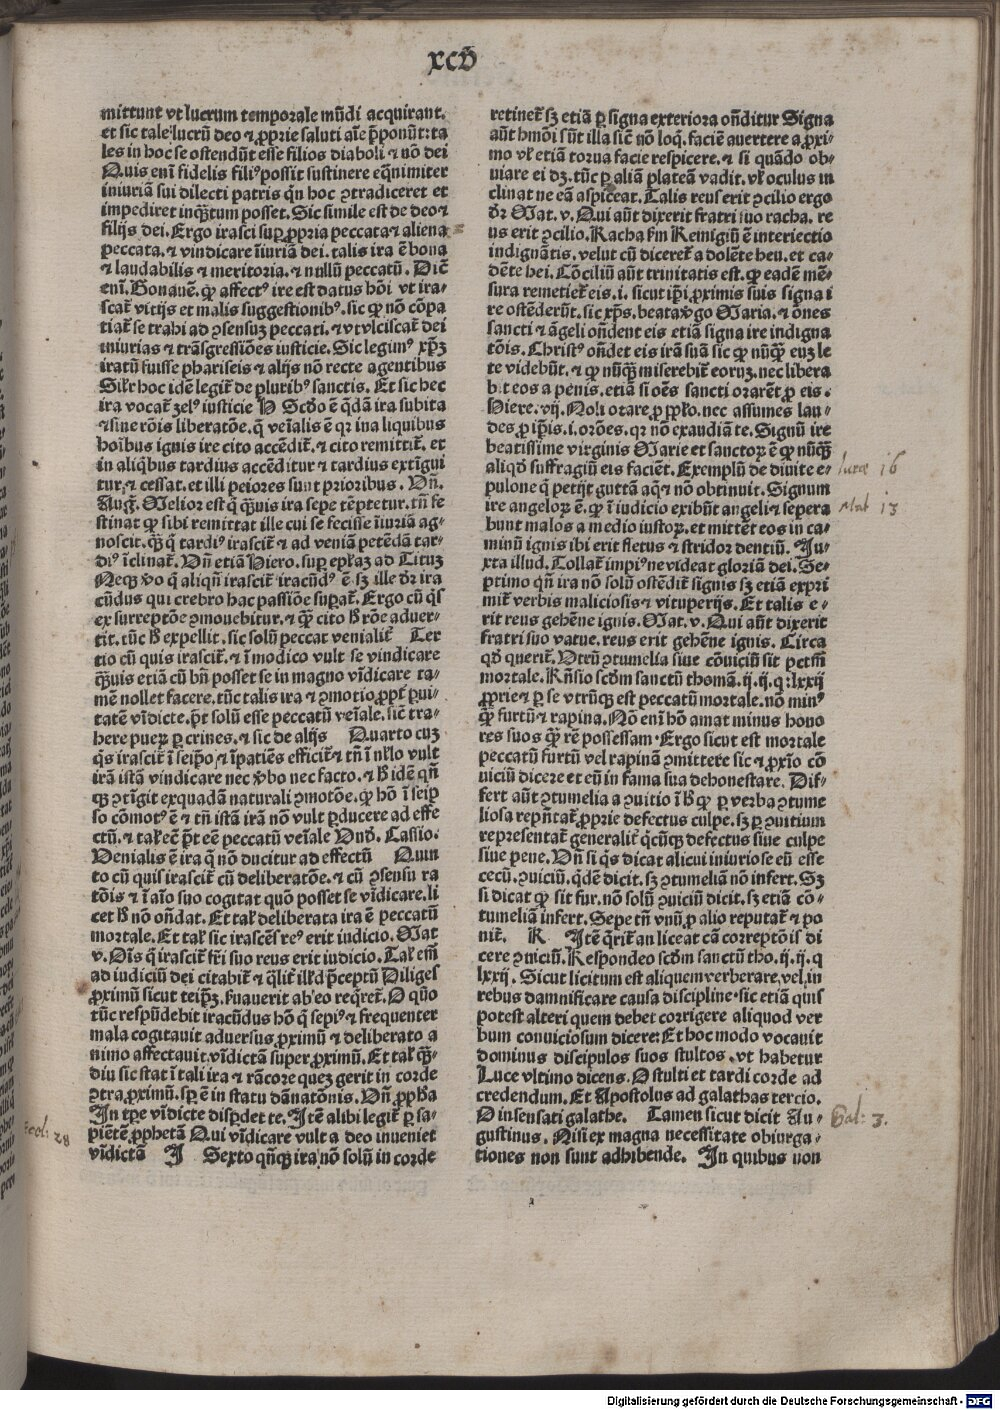 xcv
mittunt vt lucrum temporale mūdi acquirant.
et sic tale lucrū deo ⁊ ꝓprie saluti aīe p̄ponūt: ta
les in hoc se ostendūt esse filios diaboli ⁊ nō dei
Quis enī fidelis filiꝰ possit sustinere eq̄nimiter
iniuriā sui dilecti patris qn̄ hoc ꝯtradiceret et
impediret inqͣꝫtum posset. Sic simile est de deo ⁊
filijs dei. Ergo irasci suꝑ ꝓpria peccata ⁊ aliena
peccata. ⁊ vindicare īiuriā dei. talis ira ē bona
⁊ laudabilis ⁊ meritoria. ⁊ nullū peccatū. Dic̄
enī. Bonauē. ꝙ affectꝰ ire est datus hōi vt ira-
scat̄ vitijs et malis suggestionibꝰ. sic ꝙ nō cōpa
tiat̄ se trahi ad ꝯsensuꝫ peccati. ⁊ vt vlciscat̄ dei
iniurias ⁊ trāsgressiōes iusticie. Sic legimꝰ xp̄ꝫ
iratū fuisse phariseis ⁊ alijs nō recte agentibus
Silr̄ hoc idē legit̄ de pluribꝰ sanctis. Et sic hec
ira vocat̄ zelꝰ iusticie H Scd̄o ē q̄dā ira subita
⁊ sine rōis liberatōe. q̄ veīalis ē qr ina liquibus
hoībus ignis ire cito accēdit̄. ⁊ cito remittit̄. et
in aliq̄bus tardius accēditur ⁊ tardius extīgui
tur ⁊ cessat. et illi peiores sunt prioribus. Vn̄.
Auḡ. Melior est q̄ qͣꝫuis ira sepe tēptetur. tn̄ fe
stinat ꝙ sibi remittat ille cui se fecisse īiuriā ag-
noscit. qͣꝫ q̄ tardiꝰ irascit̄ ⁊ ad veniā petēdā tar-
diꝰ īclinat̄. Vn̄ etiā Hiero. suꝑ epl̄aꝫ ad Tituꝫ
Neqꝫ v̄o q̄ aliqn̄ irascit̄ iracūdꝰ ē sꝫ ille dr̄ ira
cūdus qui crebro hac passiōe suꝑat̄. Ergo cū qͥs
ex surreptōe ꝯmouebitur. ⁊ qͣꝫ cito ꝑ rōe aduer-
tit. tūc ꝑ expellit. sic solū peccat venialit̄ Ter
tio cū quis irascit̄. ⁊ ī modico vult se vindicare
qͣꝫuis etiā cū bn̄ posset se in magno vīdicare ta-
mē nollet facere. tūc talis ira ⁊ ꝯmotio ꝓpt̄ ꝑui-
tatē vīdicte. p̄t solū esse peccatū veīale. sic̄ tra-
here pueꝝ ꝑ crines. ⁊ sic de alijs Quarto cuꝫ
qͥs irascit̄ ī seip̄o ⁊ īpatiēs efficit̄ ⁊ tn̄ ī nl̄lo vult
irā istā vindicare nec v̄bo nec facto. ⁊ ꝑ idē qn̄
qꝫ ꝯtīgit exquadā naturali ꝯmotōe. ꝙ hō ī seip̄
so cōmotꝰ ē ⁊ tn̄ istā irā nō vult ꝑducere ad effe
ctū. ⁊ tal̄ eē p̄t eē peccatū veīale Vnd̄. Cassio.
Venialis ē ira q̄ nō ducitur ad effectū Quin
to cū quis irascit̄ cū deliberatōe. ⁊ cū ꝯsensu ra
tōis ⁊ ī aīo suo cogitat quō posset se vīdicare. li
cet ꝑ nō on̄dat. Et tal̄ deliberata ira ē peccatū
mortale. Et tal̄ sic irascēs reꝰ erit iudicio. Mat
v. Ois q̄ irascit̄ fr̄i suo reus erit iudicio. Tal̄ em̄
ad iudiciū dei citabit̄ ⁊ q̄lit̄ ill̄d p̄ceptū Diliges
ꝓximū sicut teip̄ꝫ. ẜuauerit ab eo req̄ret̄. O qūo
tūc respūdebit iracūdus hō q̄ sepiꝰ ⁊ frequenter
mala cogitauit aduersus ꝓximū ⁊ deliberato a
nimo affectauit vīdictā super ꝓximū. Et tal̄ qͣꝫ-
diu sic stat ī tali ira ⁊ rācore queꝫ gerit in corde
ꝯtra ꝓximū. sꝑ ē in statu dānatōnis. Vn̄ ꝓpħa
In tꝑe vīdicte disꝑdet te. Itē alibi legit̄ ꝑ sa-
piētē ꝓphetā Qui vīdicare vult a deo inueniet
vīdictā I Sexto qn̄qꝫ ira nō solū in corde
retinet̄ sꝫ etiā ꝑ signa exteriora on̄ditur Signa
aūt hmōi sūt illa sic̄ nō loq̄. faciē auertere a ꝓxi-
mo vl̄ etiā torua facie respicere. ⁊ si quādo ob-
uiare ei dꝫ. tūc ꝑ aliā plateā vadit. vl̄ oculus in
clinat ne eā aspiceat. Talis reus erit ꝯcilio ergo
dr̄ Mat. v. Qui aūt dixerit fratri suo racha. re
us erit ꝯcilio. Racha ẜm Remigiū ē interiectio
indignātis. velut cū diceret̄ a dolēte heu. et ca-
dēte hei. Cōciliū aūt trinitatis est. ꝙ eadē mē-
sura remetiet̄ eis. i. sicut ip̄i ꝓximis suis signa i
re ostēderūt. sic xp̄s. beata v̄go Maria. ⁊ ōnes
sancti ⁊ āgeli on̄dent eis etiā signa ire indigna
tōis. Christꝰ on̄det eis irā suā sic ꝙ nūqͣꝫ euꝫ le
te videbūt. ⁊ ꝙ nūqͣꝫ miserebit̄ eoruꝫ. nec libera
bit eos a penis. etiā si oēs sancti orarēt ꝓ eis.
Hiere. vij. Noli orare ꝓ pp̄l̄o. nec assumes lau-
des ꝓ ip̄is. i. orōes. qr nō exaudiā te. Signū ire
beatissime virginis Marie et sanctoꝝ ē ꝙ nūqͣꝫ
aliqd̄ suffragiū eis faciēt. Exemplū de diuite e-
pulone q̄ petijt guttā aq̄ ⁊ nō obtinuit. Signum
ire angeloꝝ ē. ꝙ ī iudicio exibūt angeli ⁊ sepera
bunt malos a medio iustoꝝ. et mittēt eos in ca-
minū ignis ibi erit fletus ⁊ stridor dentiū. Iu-
xta illud. Tollat̄ impiꝰ ne videat gloriā dei. Se-
ptimo qn̄ ira nō solū ostēdit̄ signis sꝫ etiā expri
mit̄ verbis maliciosis ⁊ vituperijs. Et talis e-
rit reus gehēne ignis. Mat. v. Qui aūt dixerit
fratri suo vatue. reus erit gehēne ignis. Circa
qd̄ querit̄. Vtrū ꝯtumelia siue cōuiciū sit pctm̄
mortale. Rn̄sio scd̄m sanctū thomā. ij. ij. q: lxxij
ꝓprie ⁊ ꝑ se vtrūqꝫ est peccatū mortale. nō minꝰ
qͣꝫ furtū ⁊ rapina. Nō enī hō amat minus hono
res suos qͣꝫ rē possessam. Ergo sicut est mortale
peccatū furtū vel rapinā ꝯmittere sic ⁊ ꝓxīo cō
uiciū dicere et eū in fama sua dehonestare. Dif-
fert aūt ꝯtumelia a ꝯuitio ī ꝑ ꝙ ꝑ verba ꝯtume
liosa repn̄tat̄ ꝓprie defectus culpe. sꝫ ꝑ ꝯuitium
representat̄ generalit̄ qͥcūqꝫ defectus siue culpe
siue pene. Vn̄ si qͥs dicat alicui iniuriose eū esse
cecū. ꝯuiciū. qͥdē dicit. sꝫ ꝯtumeliā nō infert. Sꝫ
si dicat ꝙ sit fur. nō solū ꝯuiciū dicit. sꝫ etiā cō-
tumeliā infert. Sepe tn̄ vnū ꝓ alio reputat̄ ⁊ po
nit̄. K Itē q̄rit̄ an liceat cā correptōis di
cere ꝯuiciū. Respondeo scd̄m sanctū tho. ij. ij. q
lxxij. Sicut licitum est aliquem verberare. vel in
rebus damnificare causa discipline. sic etiā quis
potest alteri quem debet corrigere aliquod ver
bum conuiciosum dicere: Et hoc modo vocauit
dominus discipulos suos stultos. vt habetur
Luce vltimo dicens. O stulti et tardi corde ad
credendum. Et Apostolus ad galathas tercio.
O insensati galathe. Tamen sicut dicit Au-
gustinus. Nisi ex magna necessitate obiurga-
tiones non sunt adhibende. In quibus non
luce 16
Mat 13
Gal: 3.
Eccl: 28
Digitalisierung gefördert durch die Deutsche Forschungsgemeinschaft - DFG